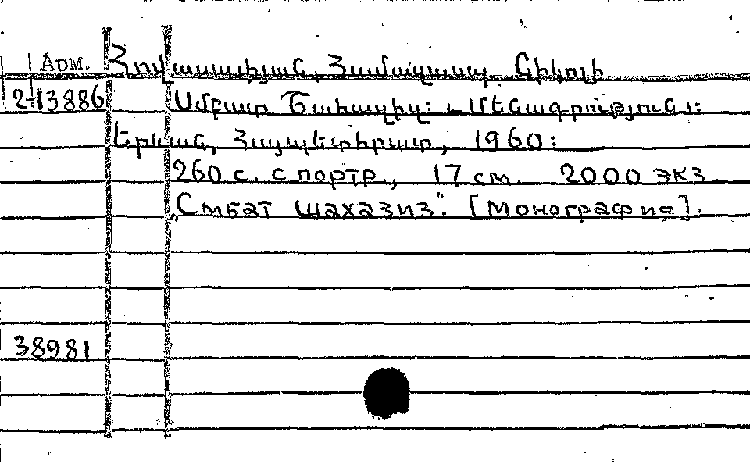 Арм. Հովասափյան, Համազասպ Նիկոլի
2-13886 Սմբատ Շահազիզ: [Մենագրություն]:
Երևան, Հայպետհրատ, 1960:
260 с. с портр., 17 см. 2000 экз
„Смбат Шахазиз". [Монография].
38981